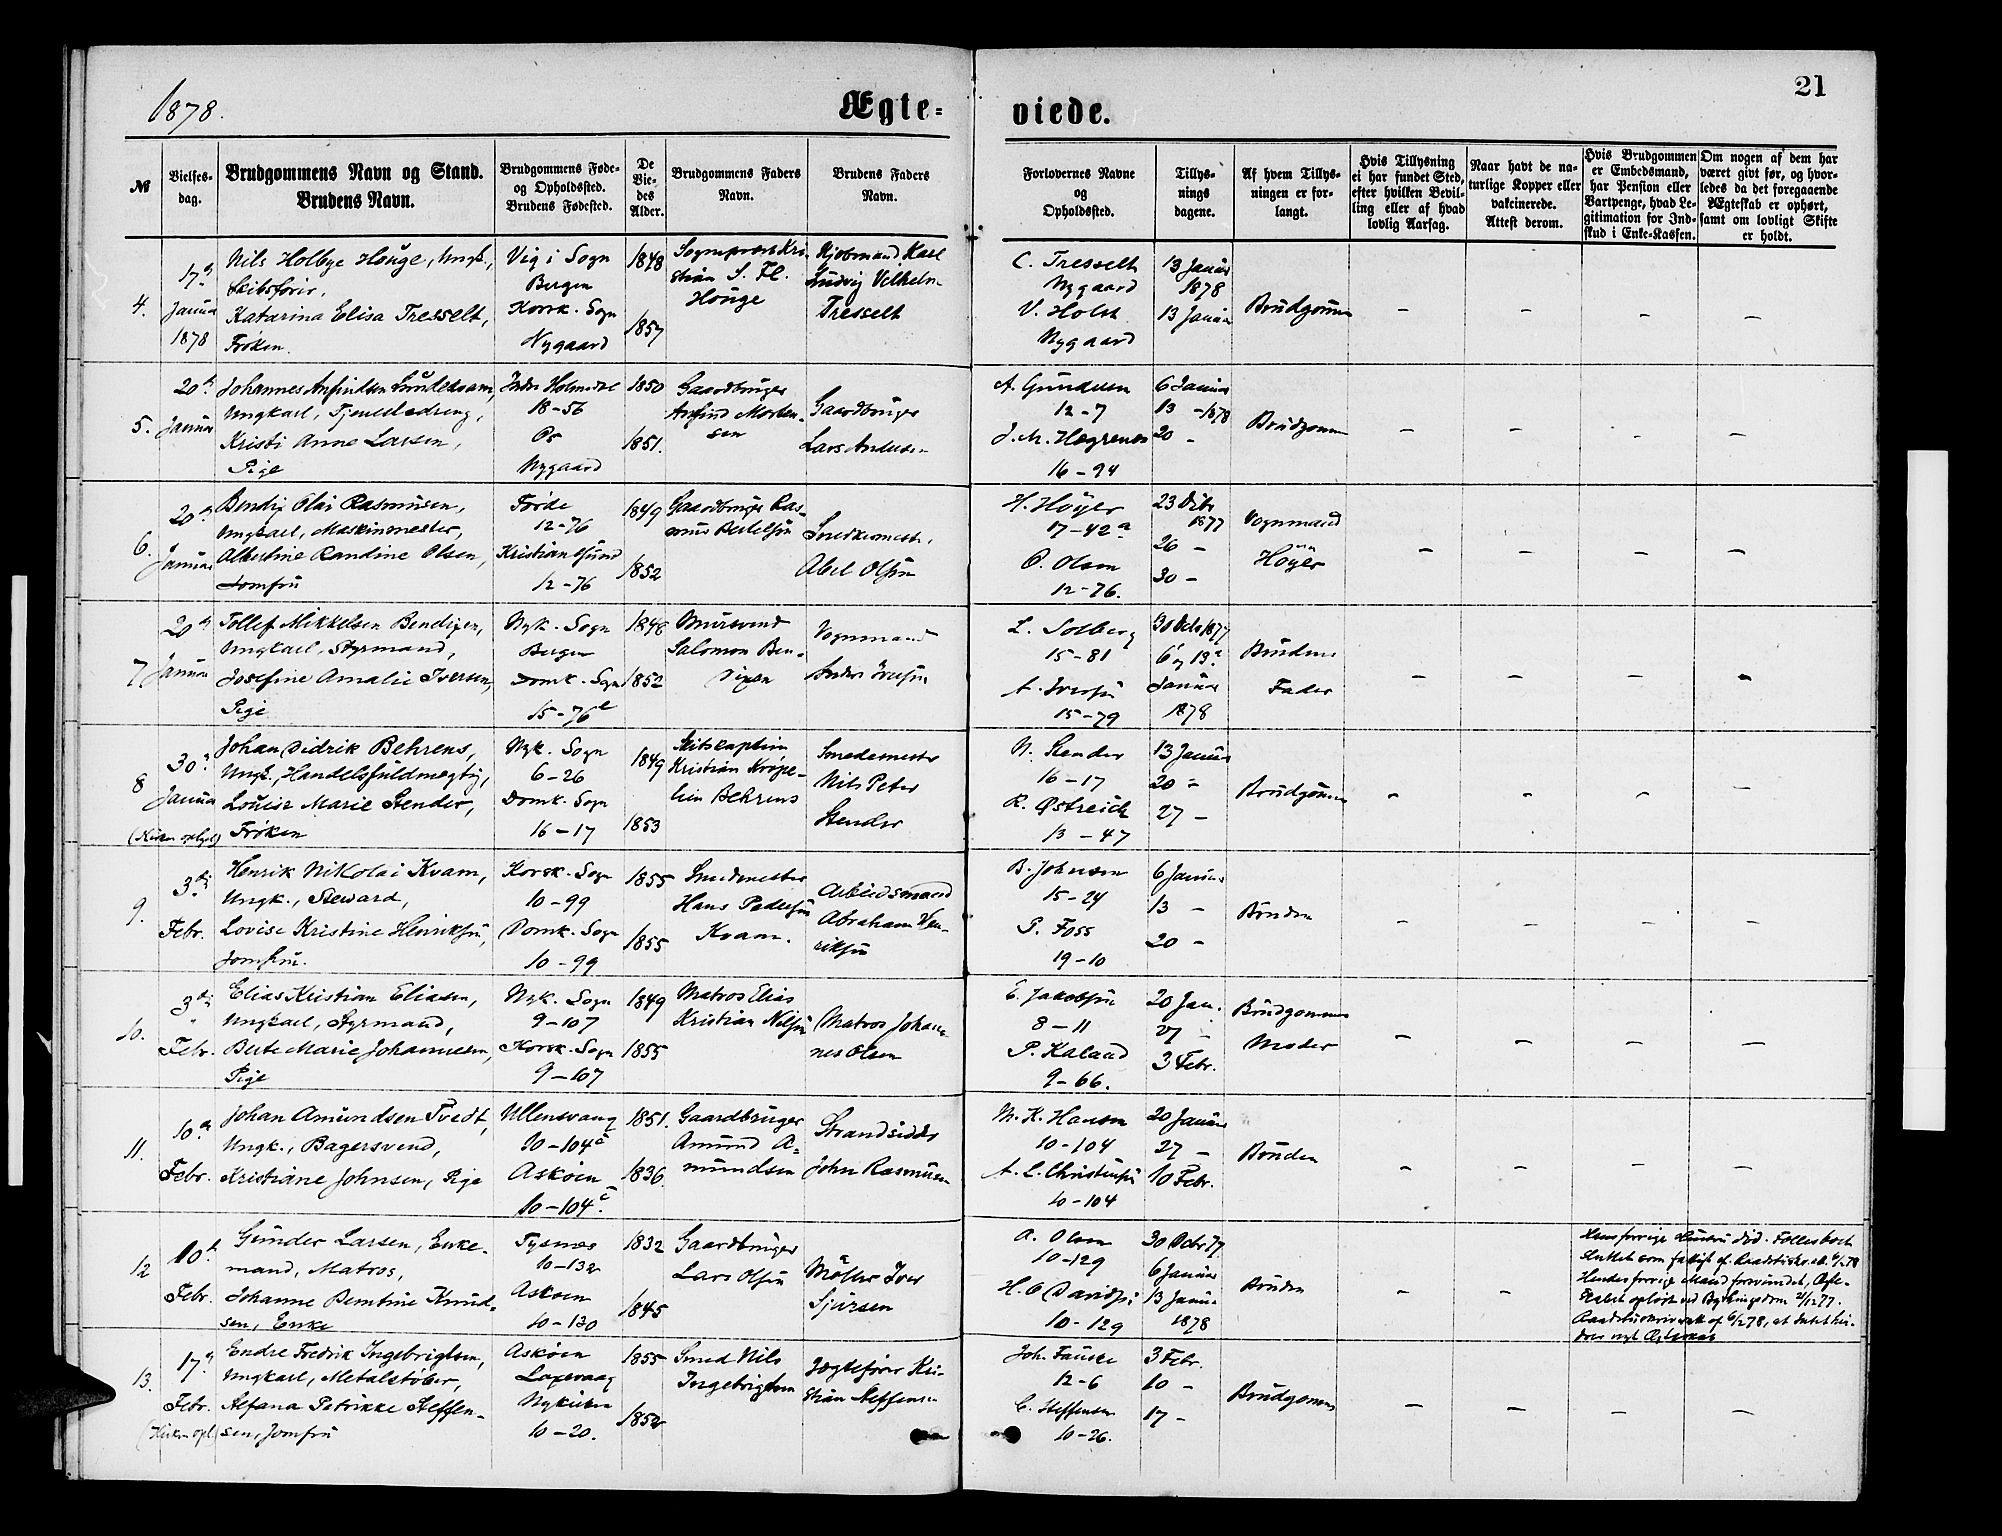 1878.
Ægte-
viede.
21
№
Vielses-
dag.
Brudgommens Navn og Stand.
Brudens Navn.
Brudgommens Føde-
og Opholdssted.
Brudens Fødested.
De
Vie-
des
Alder.
Brudgommens Faders
Navn.
Brudens Faders
Navn.
Forlovernes Navne
og
Opholdssted.
Tillys-
nings
dagene.
Af hvem Tillys-
ningen er for-
langt.
Hvis Tillysning
ei har fundet Sted,
efter hvilken Bevil-
ling eller af hvad
lovlig Aarsag.
Naar havt de na-
turlige Kopper eller
vakcinerede.
Attest derom.
Hvis Brudgommen
er Embedsmand,
har Pension eller
Vartpenge, hvad Le-
gitimation for Ind-
skud i Enke-Kassen.
Om nogen af dem har
været givt før, og hvor-
ledes da det foregaaende
Ægteskab er ophørt,
samt om lovligt Skifte
er holdt.
4.
17
Januar
1878
Nils Holbye Houge, Ungk.,
Skibsfører,
Katarina Elisa Tresselt,
Frøken.
Vig i Sogn
Bergen
Korsk. Sogn
Nygaard
1848
1857
Sogneprest Kri-
stian S. Fl.
Houge
Kjøbmand Karl
Ludvig Vilhelm
Tresselt
C. Tresselt
Nygaard
V. Holst
Nygaard
13 Januar
1878
13 Januar
Brudgommen
5.
20
Januar
Johannes Anfindsen
Ungkarl, Tjenestedreng,
Kristi Anne Larsen,
Pige
Indre Holmedal
18-56
Os
Nygaard
1850
1851.
Gaardbruger
Anfind Morten-
sen
Gaardbruger
Lars Andersen
A. Gundersen
12-7
J. M. Hegrenes
16-94
6 Januar
13 - 1878
20 -
Brudgommen
6.
20
Januar
Bendix Olai Rasmusen,
Ungkarl, Maskinmester,
Albertine Randine Olsen,
Jomfru
Førde
12-76
Kristiansund
12-76
1849
1852
Gaardbruger Ras-
mus Bertelsen
Snedkermester
Abel Olsen
H. Høyer
17-42 a
O. Olsen
12-76.
23 Debr
1877
26 -
30 -
Vognmand
Høyer
7
20
Januar
Tollef Mikkelsen Bendixen,
Ungkarl, Styrmand,
Josefine Amalie Iversen,
Pige
Nyk. Sogn
Bergen
Domk. Sogn
15-76
1848
1852
Mursvend
Salomon Ben-
dixen
Vognmand
Anders Iversen
L. Solberg
15-81
A. Iversen
15-79
30 Debr 1877
6 og 13
Januar
1878
Brudens
Fader
8
30
Januar
(Kirken opl.)
Johan Didrik Behrens,
Ungk., Handelsfuldmægtig,
Louise Marie Stender,
Frøken
Nyk. Sogn
6-26
Domk. Sogn
16-17
1849
1853
Skibskaptein
Kristian Krøpe-
lien Behrens
Smedemester
Nils Peter
Stender
N. Stender
16-17
R. Østreich
13-47
13 Januar
20 -
27 -
Brudgommen
9.
3
Febr.
Henrik Nikolai Kvam,
Ungk., Steward,
Lovise Kristine Henriksen,
Jomfru.
Korsk. Sogn
10-99
Domk. Sogn
10-99
1855
1855
Smedmester
Hans Pedersen
Kvam.
Arbeidsmand
Abraham Hen-
riksen
B. Johnsen
15-24
P. Foss
19-10
6 Januar
13 -
20 -
Bruden
10.
3
Febr.
Elias Kristian Eliasen,
Ungkarl, Styrmand,
Berte Marie Johannesen,
Pige
Nyk. Sogn
9-107
Korsk. Sogn
9-107
1849
1855
Matros Elias
Kristian Nilsen
Matros Johan-
nes Olsen
E. Jakobsen
8-11
P. Kaland
9-66.
20 Jan.
27 -
3 Febr.
Brudgommens
Moder
11.
10
Febr.
Johan Amundsen Tvedt,
Ungk., Bagersvend,
Kristiane Johnsen, Pige
Ullensvang
10-104 c
Askøen
10-104 c.
1851.
1836.
Gaardbruger
Amund A-
mundsen
Strandsidder
John Rasmusen
M. K. Hansen
10-104
A. L. Christensen
10-104
20 Januar
27 -
10 Febr.
Bruden
12
10
Febr.
Gunder Larsen, Enke-
mand, Matros,
Johanne Berntine Knud-
sen, Enke
Tysnes
10-132
Askøen
10-130
1832
1845
Gaardbruger
Lars Olsen
Møller Iver
Sjursen
A. Olsen
10-129
H. O. Davidsen
10-129
30 Debr 77
6 Januar
13 Januar
1878
Bruden
Hans forrige Hustru død.
Hendes forrige Mand forsvundet, Ægte-
13.
17
Febr.
(Kirken opl.)
Endre Fredrik Ingebrigtsen,
Ungkarl, Metalstøber,
Alfana Petrikke Steffen-
sen, Jomfru
Askøen
Laxevaag
Nykirken
10-20.
1855
1852
Smed Nils
Ingebrigtsen
Jægtefører Kri-
stian Steffensen
Joh. Fauske
12-6
C. Steffensen
10-26.
3 Febr.
10 -
17 -
Brudgommen